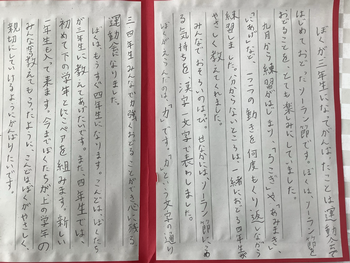 ぼくが三年生になってがんばったことは、運動会で
はじめておどったソーラン節です。ぼくは、ソーラン節を
おどることを、とても楽しみにしていました。
九月から練習がはじまり、「ろこぎ」や、「あみまき」、
一つ一つの動きを何度もくり返しながら
練習しました。分からないところは、一緒におどる四年生が
やさしく教えてくれました。
みんなでおそろいのはっぴ、せなかには、ソーラン節に
る気持ちを漢字一文字で表しました。
ぼくがえらんだのは、「力」です。「力」という文字の通り
三、四年生みんなで力強くおどることができ、心に残る
運動会になりました。
ぼくは、もうすぐ四年生になります。こんどはぼくたち
が三年生に教えてあげたいです。また、四年生では、
初めて下の学年とペアを組みます。新しい
一年生も入って来ます。今までぼくたちが上の学年の
みんなに教えてもらったように、こんどはぼくがやさしく、
親切にしていけるようにがんばりたいです。